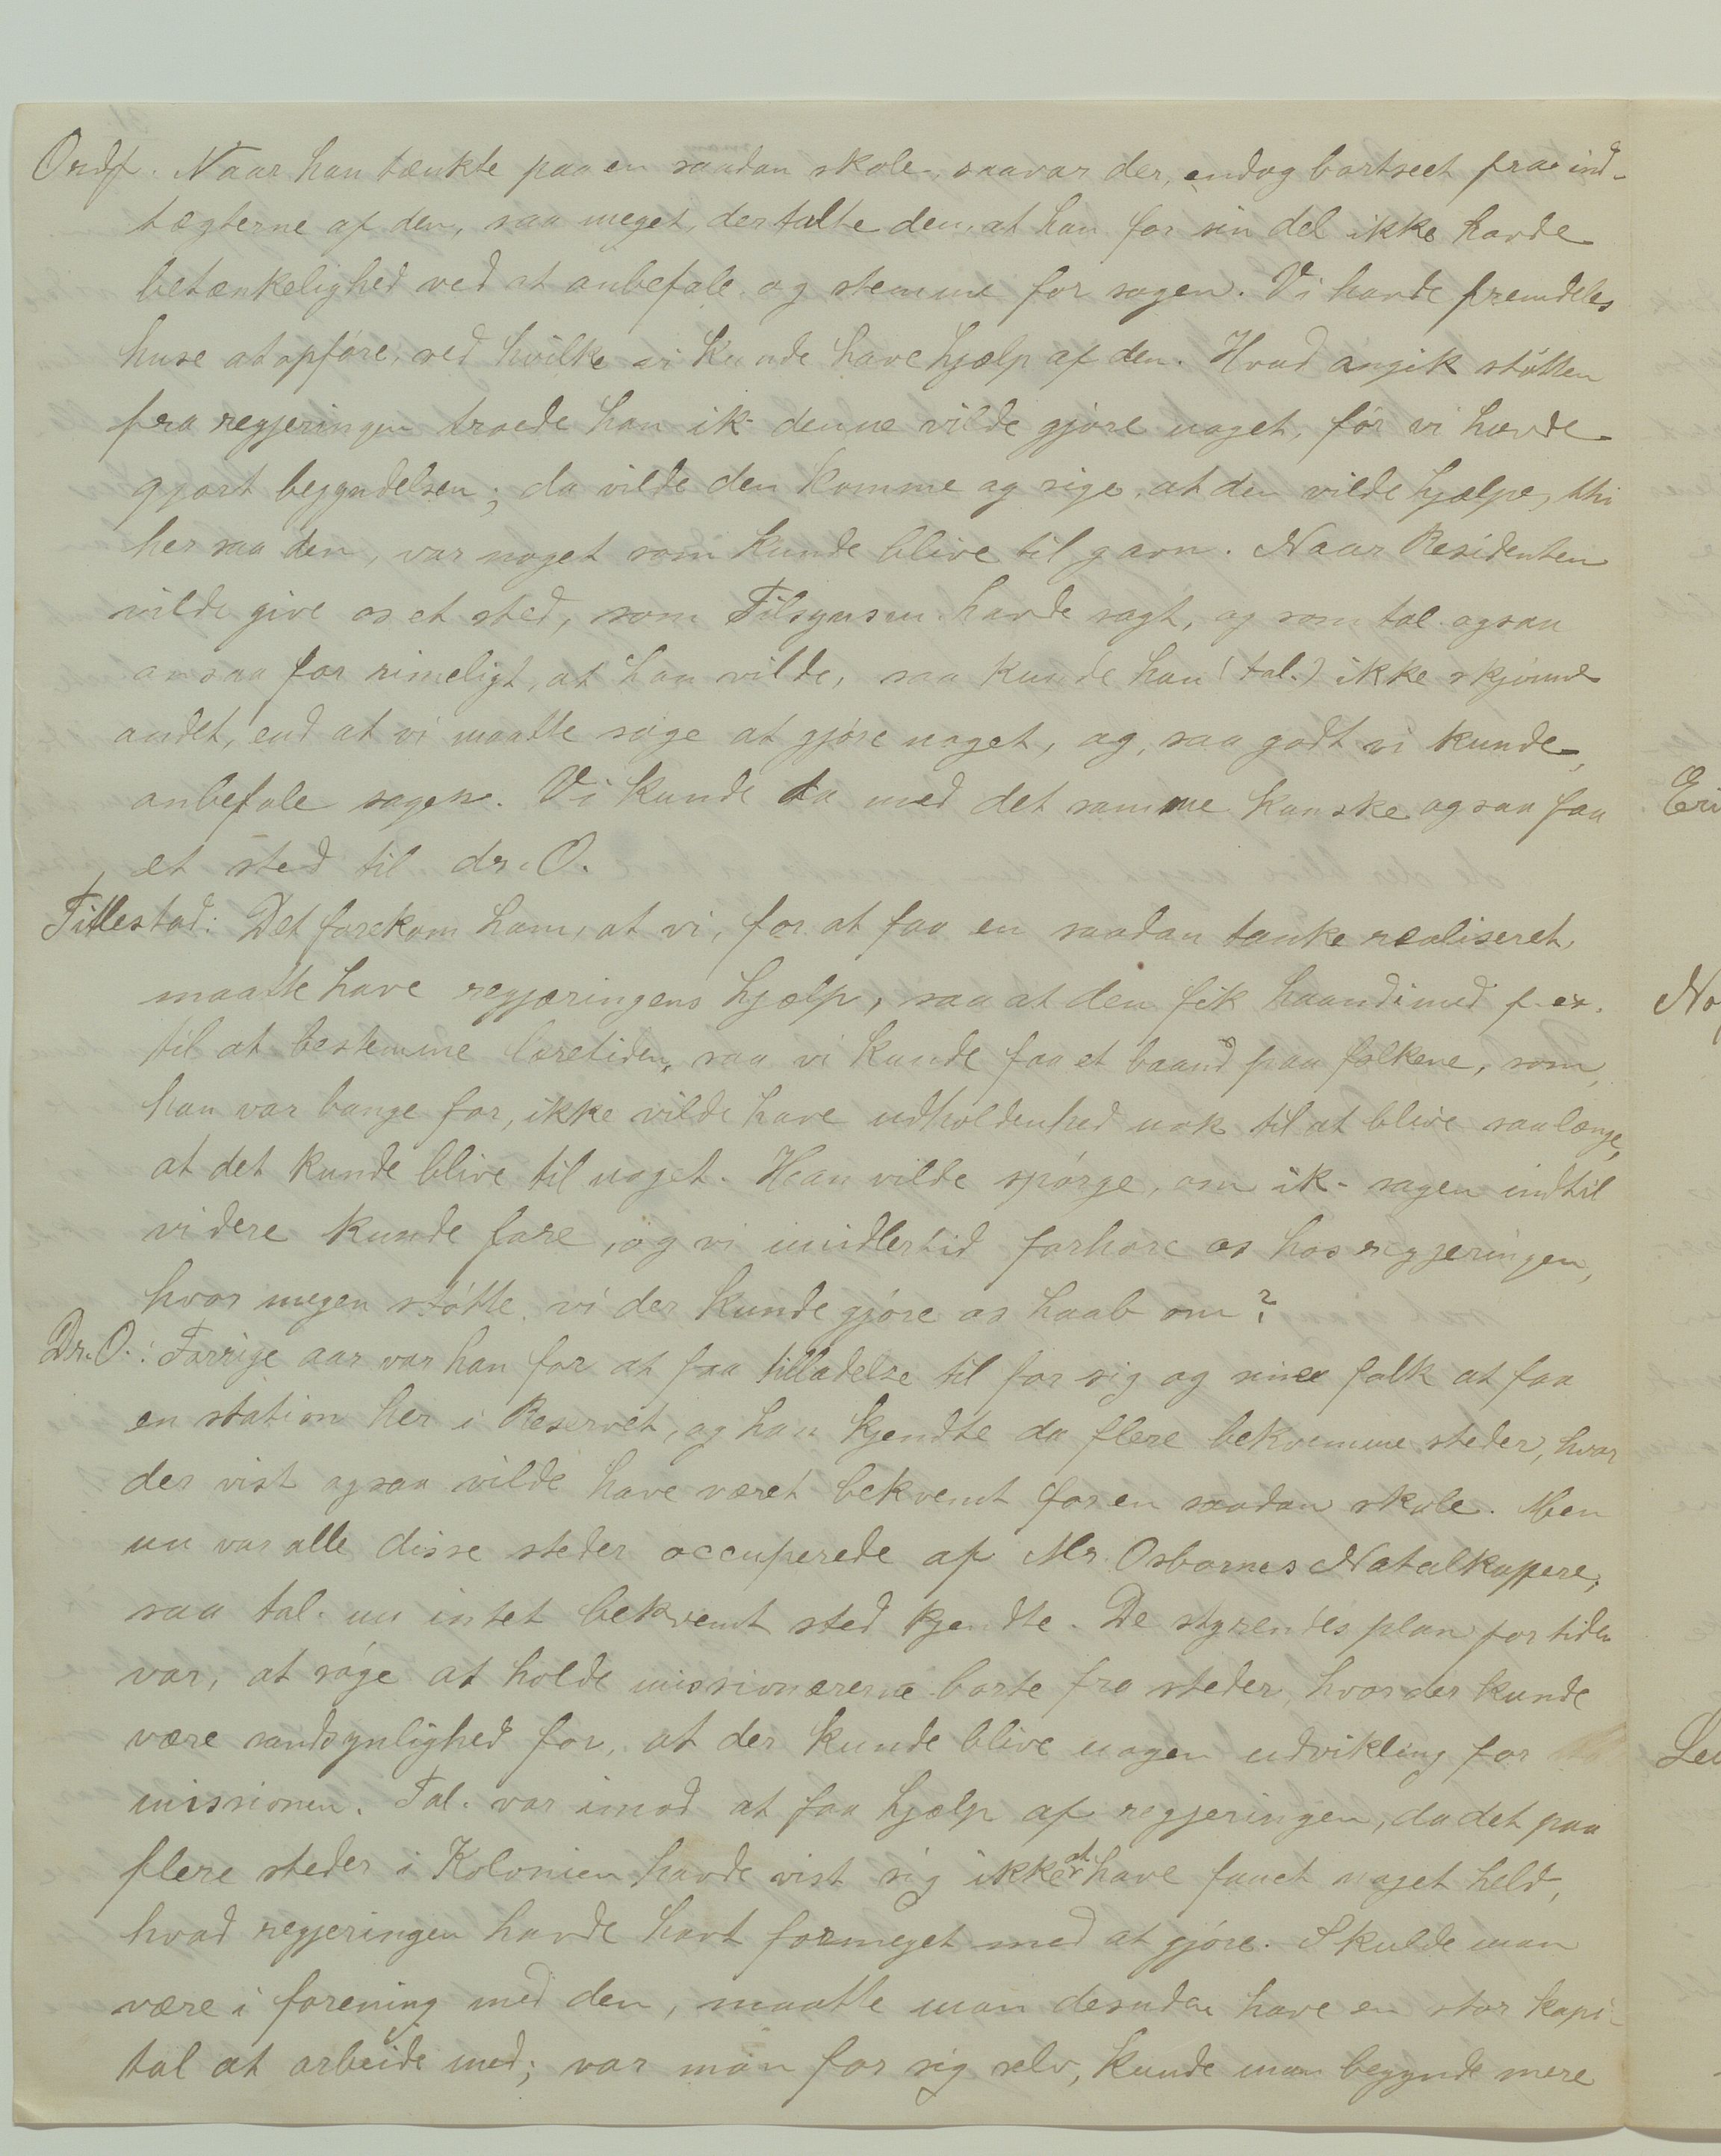 Ordf. Naar han tænkte paa en saadan skole, saa var der, endog bortseet fra ind-
tægterne af den, saa meget, der talte den, at han for sin del ikke havde
betænkelighed ved at anbefale og stemme for sagen. Vi havde fremdeles
huse at opføre, ved hvilke vi kunde have hjælp af den. Hvad angik støtten
fra regjeringen troede han ik- denne vilde gjøre noget, før vi havde
gjort begyndelsen; da vilde den komme og sige, at den vilde hjælpe, thi
her saa den, var noget som kunde blive til gavn. Naar Residenten
vilde give os et sted, som Tilsynsm. havde sagt, og som tal. ogsaa
ansaa for rimeligt, at han vilde, saa kunde han (tal.) ikke skjønne
andet, end at vi maatte søge at gjøre noget, og, saa godt vi kunde,
anbefale sagen. Vi kunde da med det samme kanske ogsaa faa
et sted til dr. O.
Titlestad: Det forekom ham, at vi, for at faa en saadan tanke realiseret,
maatte have regjæringens hjælp, saa at den fik haand i med f. ex.
til at bestemme læretiden, saa vi kunde faa et baand paa folkene, som,
han var bange for, ikke vilde have udholdenhed nok til at blive saalænge,
at det kunde blive til noget. Han vilde spørge, om ik- sagen indtil
videre kunde fare, og vi imidlertid forhøre os hos regjeringen,
hvor megen støtte vi der kunde gjøre os haab om?
Dr. O.: Forrige aar var han for at faa tilladelse til for sig og sine folk at faa
en station her i Reservet, og han kjendte da flere bekvemme steder, hvor
der vist ogsaa vilde have været bekvemt for en saadan skole. Men
nu var alle disse steder occuperede af Mr. Osbornes Natalkaffere,
saa tal. nu intet bekvemt sted kjendte. De styrendes plan for tiden
var, at søge at holde missionærerne borte fra steder, hvor der kunde
være sandsynlighed for, at der kunde blive nogen udvikling for
missionen. Tal. var imod at faa hjælp af regjeringen, da det paa
flere steder i Kolonien havde vist sig ikke at have faaet noget held,
hvad regjeringen havde havt formeget med at gjøre. Skulde man
være i forening med den, maatte man desuden have en stor kapi-
tal at arbeide med; var man for sig selv, kunde man begynde mere
Eri
No